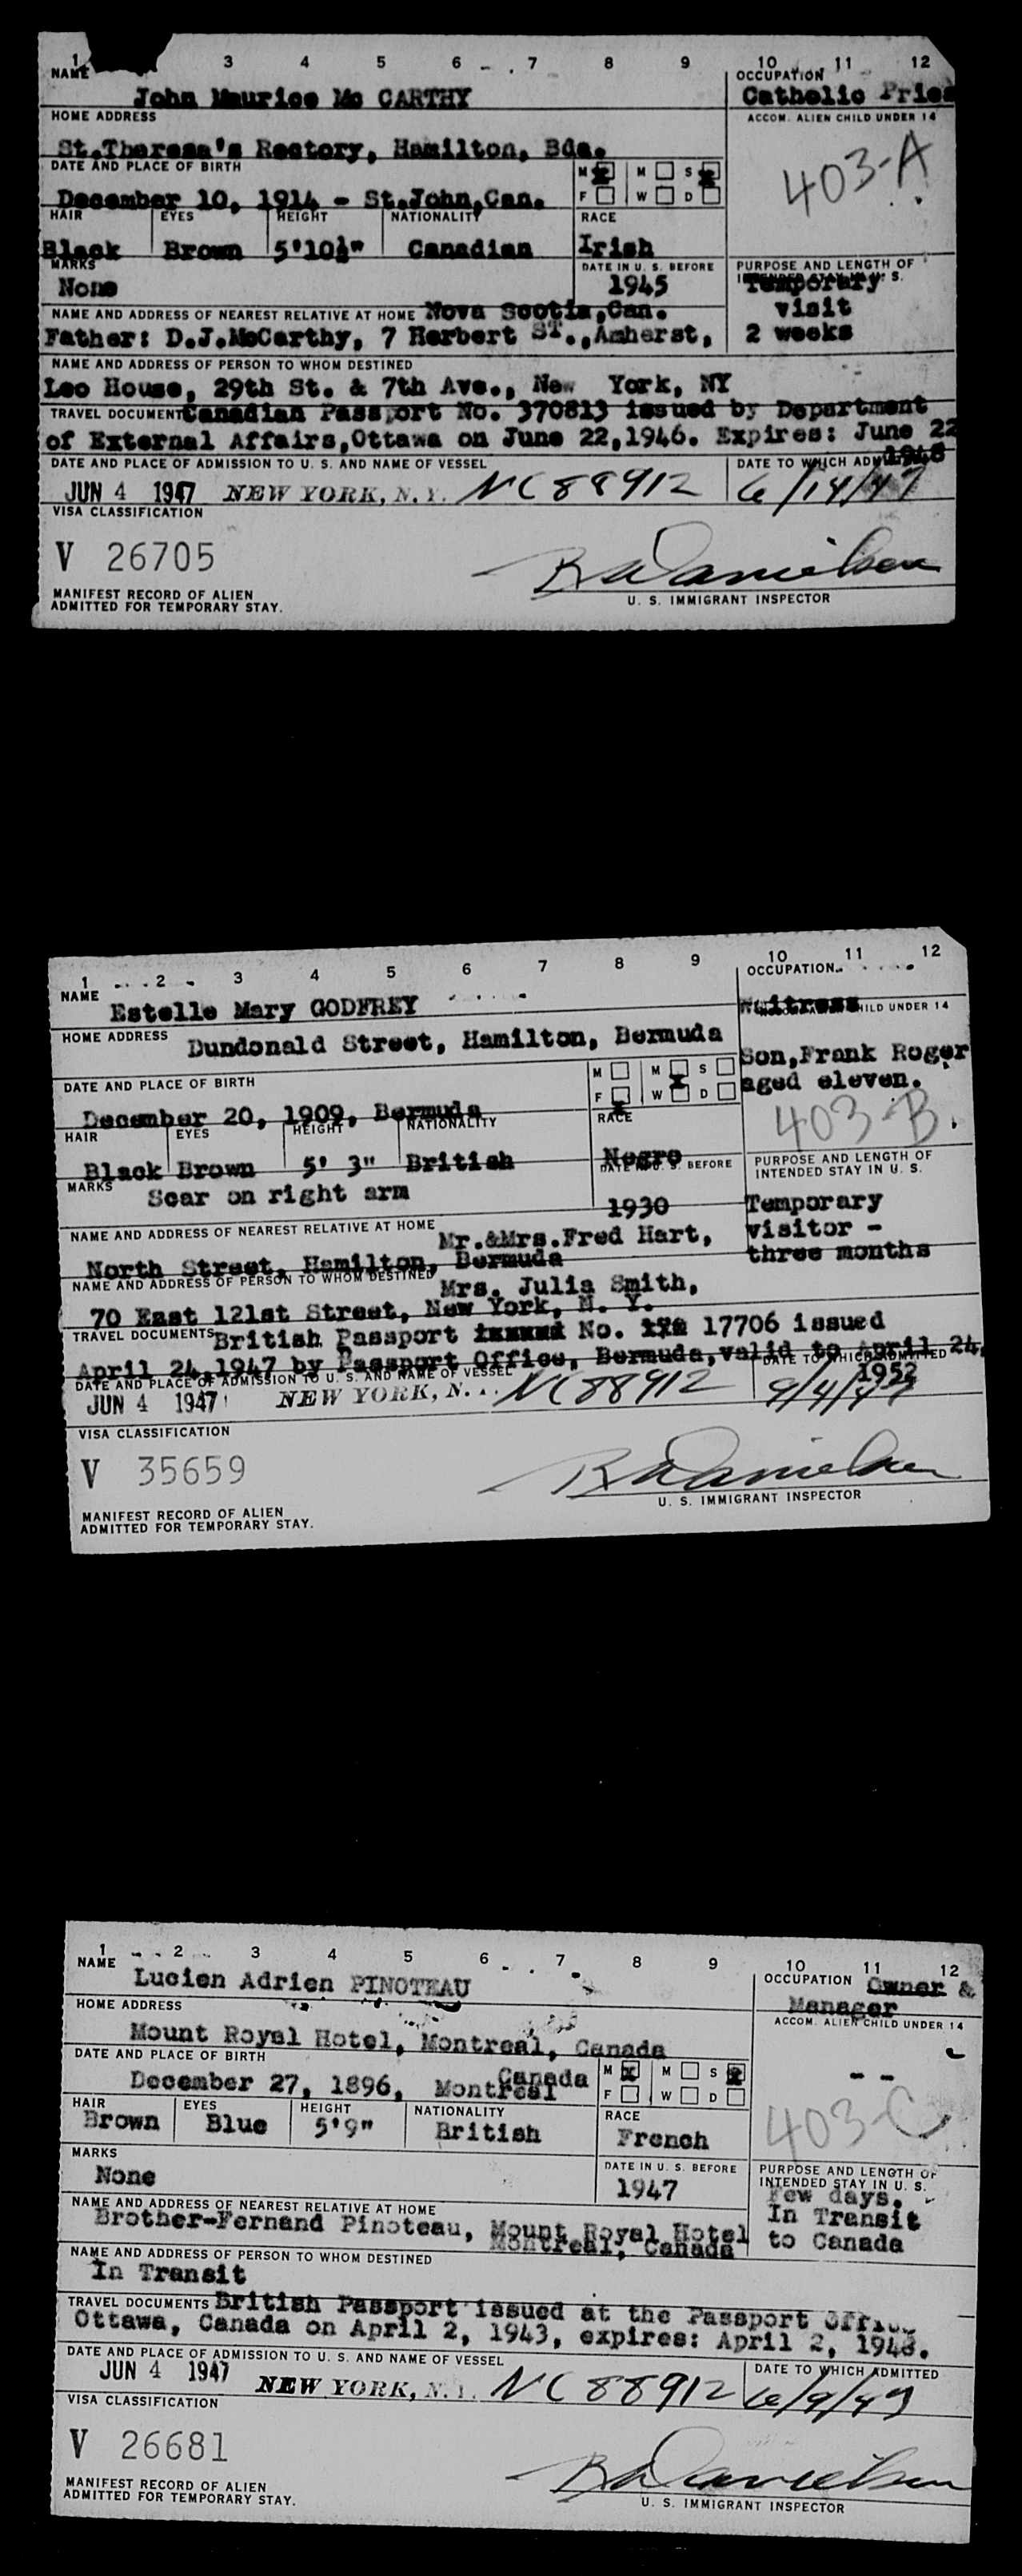 1 3 4 5 6 7 8 9 10 11 12
NAME OCCUPATION
John Maurice Mc CARTHY Catholic Pries
HOME ADDRESS ACCOM. ALIEN CHILD UNDER 14
St.Theresa's Rectory, Hamilton, Bda.
403-A
DATE AND PLACE OF BIRTH M M S
December 10, 1914 - St.John,Can. F W D
HAIR EYES HEIGHT NATIONALITY RACE
Black Brown 5'10½" Canadian Irish
MARKS DATE IN U. S. BEFORE PURPOSE AND LENGTH OF
None 1945 Temporary
visit
2 weeks
NAME AND ADDRESS OF NEAREST RELATIVE AT HOME Nova Scotia,Can.
Father: D.J.McCarthy, 7 Herbert ST.,Amherst,
NAME AND ADDRESS OF PERSON TO WHOM DESTINED
Leo House, 29th St. & 7th Ave., New York, NY
TRAVEL DOCUMENT Canadian Passport No. 370813 issued by Department
of External Affairs,Ottawa on June 22,1946. Expires: June 22
1948
DATE AND PLACE OF ADMISSION TO U. S. AND NAME OF VESSEL DATE TO WHICH ADMITTED
JUN 4 1947 NEW YORK, N.Y. NC88912 6/14/47
VISA CLASSIFICATION
V 26705
R W Danielsen
MANIFEST RECORD OF ALIEN
ADMITTED FOR TEMPORARY STAY.
U. S. IMMIGRANT INSPECTOR
1 2 3 4 5 6 7 8 9 10 11 12
NAME Estelle Mary GODFREY OCCUPATION
Waitress
HOME ADDRESS Dundonald Street, Hamilton, Bermuda CHILD UNDER 14
Son,Frank Roger
aged eleven.
403-B.
DATE AND PLACE OF BIRTH M M S
December 20, 1909, Bermuda F W D
HAIR EYES HEIGHT NATIONALITY RACE
Black Brown 5' 3" British Negro
MARKS Scar on right arm DATE IN U. S. BEFORE
1930
PURPOSE AND LENGTH OF
INTENDED STAY IN U. S.
Temporary
visitor -
three months
NAME AND ADDRESS OF NEAREST RELATIVE AT HOME Mr.&Mrs.Fred Hart,
North Street, Hamilton, Bermuda
NAME AND ADDRESS OF PERSON TO WHOM DESTINED Mrs. Julia Smith,
70 East 121st Street, New York, N. Y.
TRAVEL DOCUMENTS British Passport No. 17706 issued
April 24,1947 by Passport Office, Bermuda,valid to April 24,
1952
DATE AND PLACE OF ADMISSION TO U. S. AND NAME OF VESSEL DATE TO WHICH ADMITTED
JUN 4 1947 NEW YORK, N. NC88912 9/4/47
VISA CLASSIFICATION
V 35659
R W Danielsen
MANIFEST RECORD OF ALIEN
ADMITTED FOR TEMPORARY STAY.
U. S. IMMIGRANT INSPECTOR
1 2 3 4 5 6 7 8 9 10 11 12
NAME Lucien Adrien PINOTEAU OCCUPATION Owner &
Manager
HOME ADDRESS ACCOM. ALIEN CHILD UNDER 14
Mount Royal Hotel, Montreal, Canada
- -
403-C
DATE AND PLACE OF BIRTH M M S
December 27, 1896, Montreal Canada F W D
HAIR EYES HEIGHT NATIONALITY RACE
Brown Blue 5'9" British French
MARKS DATE IN U. S. BEFORE
None 1947
PURPOSE AND LENGTH OF
INTENDED STAY IN U. S.
Few days.
In Transit
to Canada
NAME AND ADDRESS OF NEAREST RELATIVE AT HOME
Brother-Fernand Pinoteau, Mount Royal Hotel
Montreal, Canada
NAME AND ADDRESS OF PERSON TO WHOM DESTINED
In Transit
TRAVEL DOCUMENTS British Passport issued at the Passport Office
Ottawa, Canada on April 2, 1943, expires: April 2, 1948.
DATE AND PLACE OF ADMISSION TO U. S. AND NAME OF VESSEL DATE TO WHICH ADMITTED
JUN 4 1947 NEW YORK, N.Y. NC88912 6/9/47
VISA CLASSIFICATION
V 26681
R W Danielsen
MANIFEST RECORD OF ALIEN
ADMITTED FOR TEMPORARY STAY.
U. S. IMMIGRANT INSPECTOR